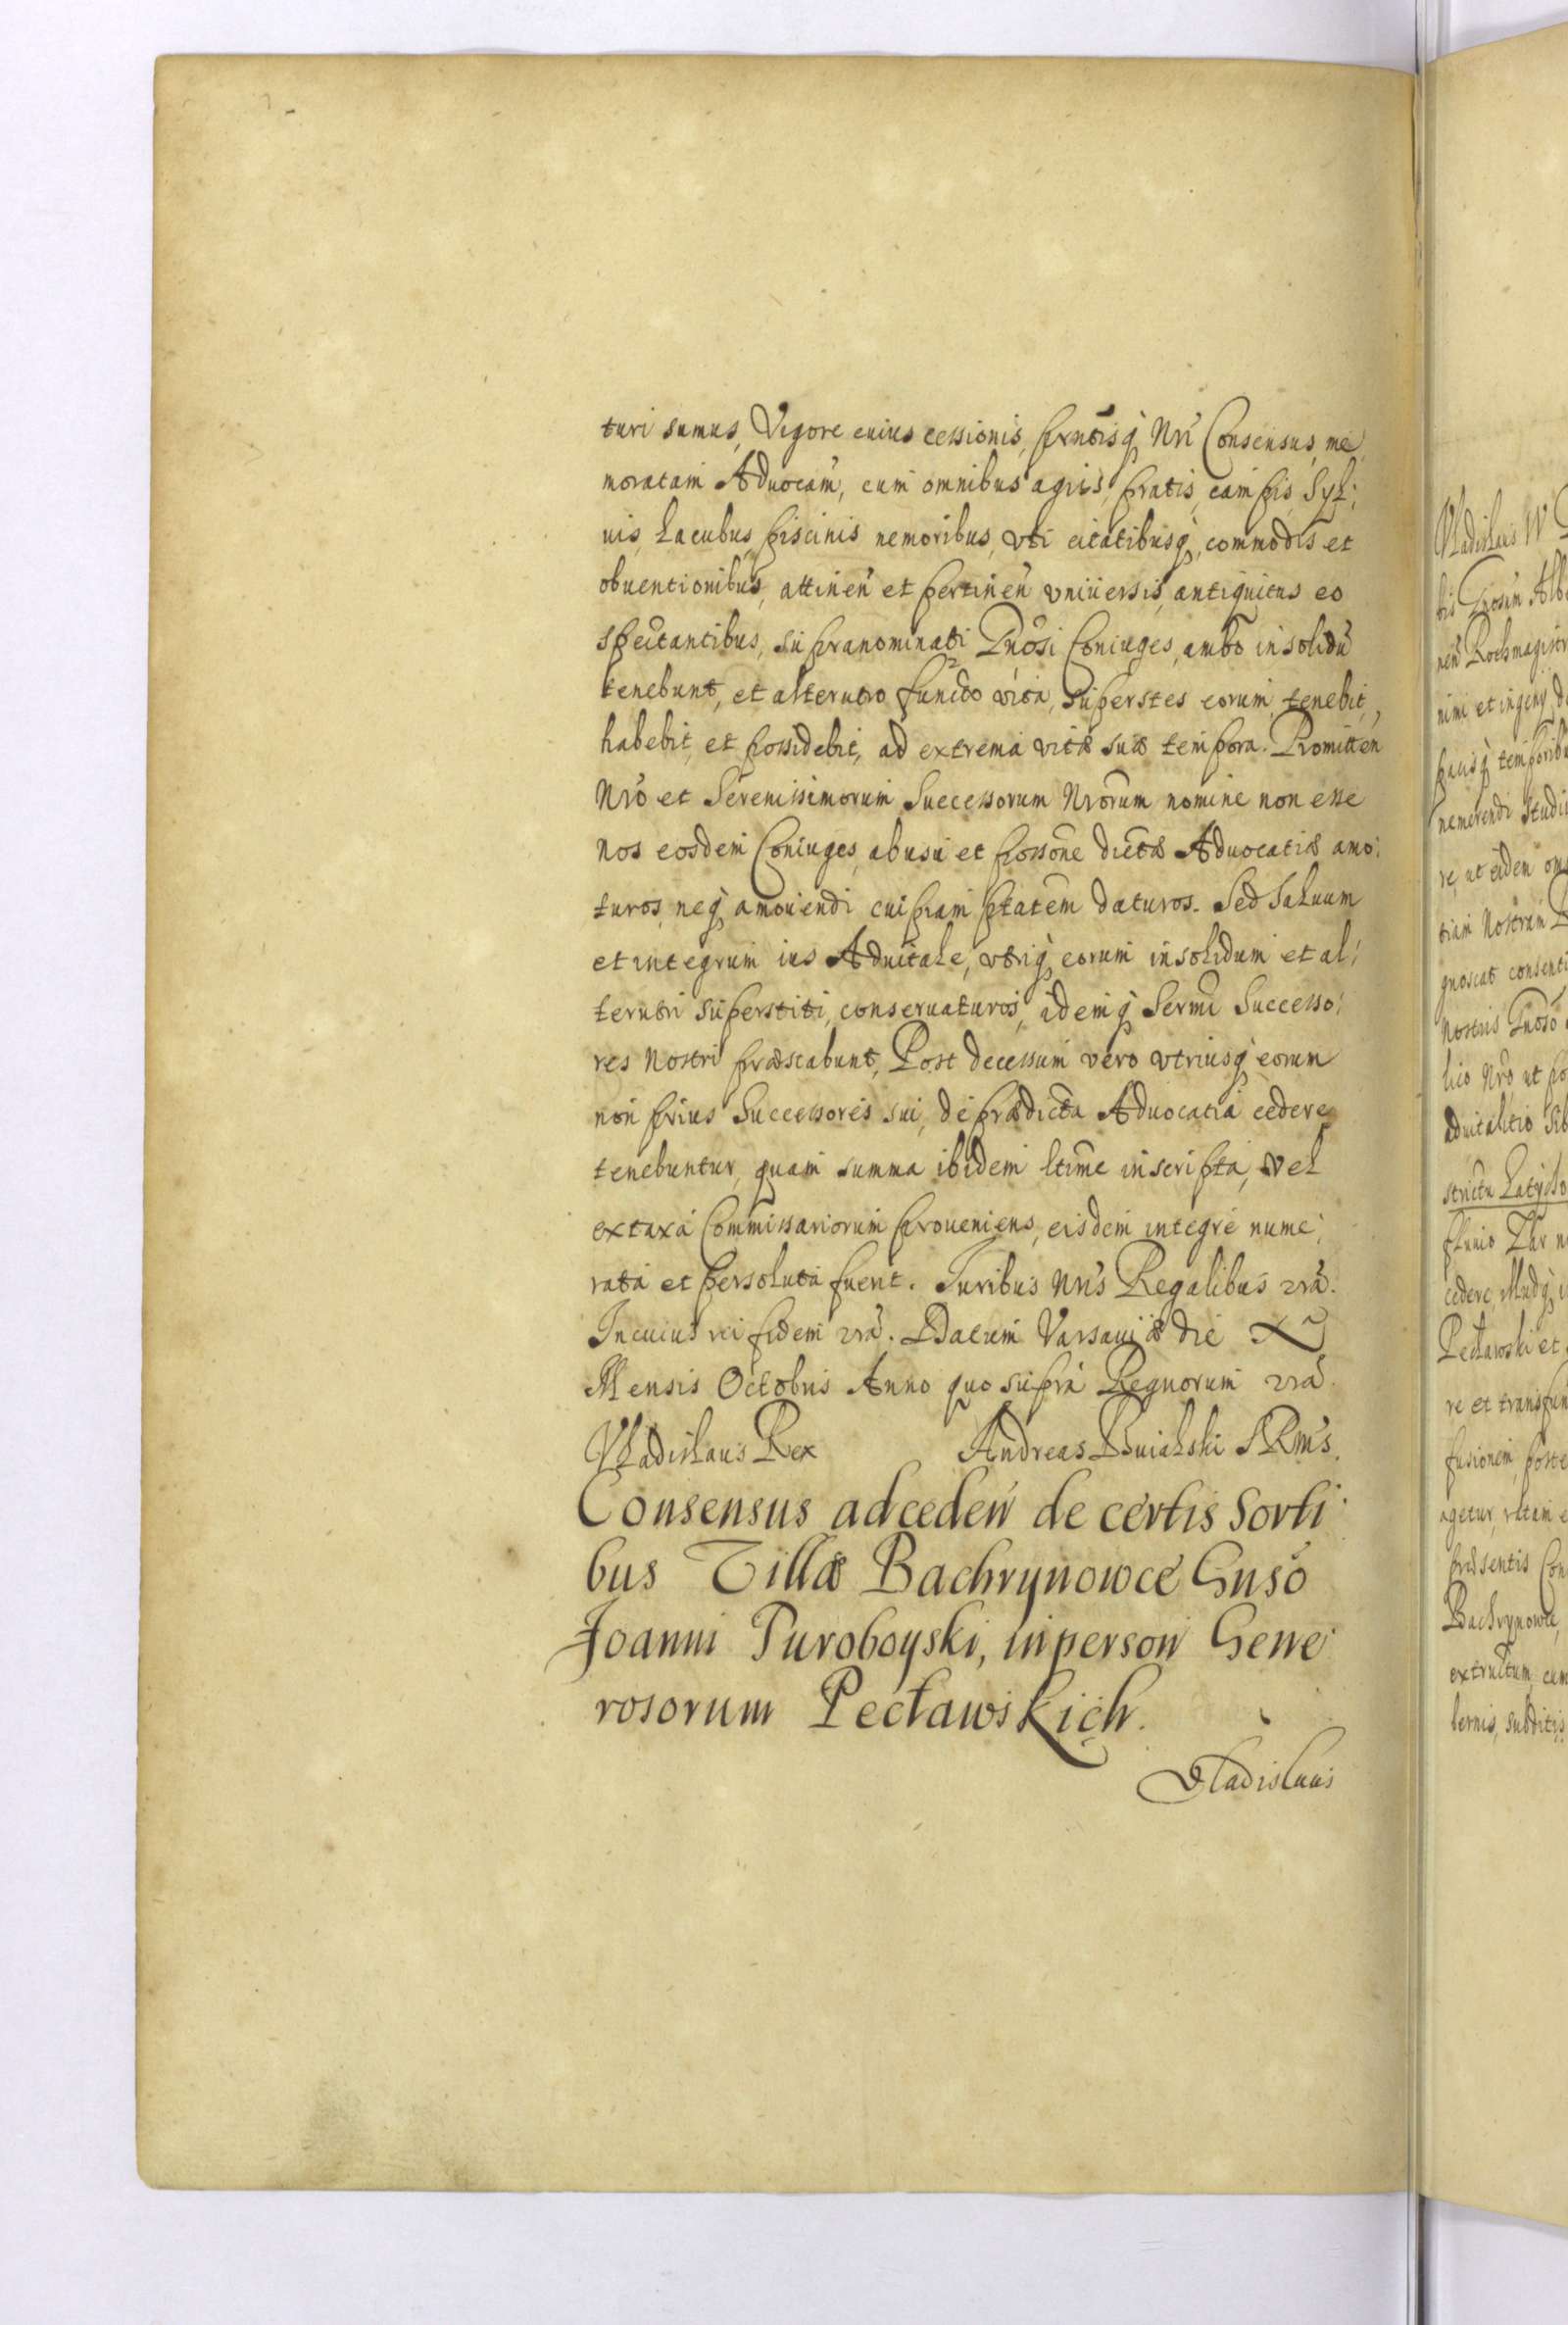 turi sumus, Vigore cuius cessionis, prñtisq̃ Nri Consensus, me,
moratam Aduocam̃, cum omnibus agris, pratis, campis, Syl:
uis, Lacubus, piscinis nemoribus, vti citatibusq̃, commodis et
obuentionibus, attineñ et pertineñ vniuersis, antiquitus eo
spectantibus, supranominati Gnõsi Coniuges, ambo in solidũ
tenebunt, et alterutro functo vita, superstes eorum tenebit,
habebit, et possidebit, ad extrema vitæ suæ tempora. Promitteñ
Nrõ et Serenissimorum Successorum Nrõrum nomine non esse
nos eosdem Coniuges, ab usu et possone dictæ Aduocatiæ amo:
turos, neq̃ amouendi cuipiam ptatem daturos. Sed Saluum
et integrum ius Aduitale, vtriq̃ eorum in solidum et al:
terutri superstiti, conseruaturos, idemq̃ Sermi Successo:
res Nostri præstabunt, Post decessum vero vtriusq̃ eorum
non prius Successores sui, de prædicta Aduocatia cedere
tenebuntur, quam summa ibidem ltime inscripta, vel
ex taxa Commissariorum proueniens, eisdem integre nume:
rata et persoluta fuerit. Iuribus Nris Regalibus
In cuius rei fidem Datum Varsauiæ die X
Mensis Octobris Anno quo supra Regnorum
Vladislaus Rex Andreas Buialski SRMs.
Consensus ad cedeń de certis Sorti
bus Villæ Bachrynowce Gnsõ
Joanni Puroboyski, in personi Gene:
rosorum Pecławskich.
Vladislaus
Vladislaus IV
bis Gnosum Albe
nen Rothmagistr
nimi et ingenij d
nemerendi studi
re, ut eidem om
triam Nostram
gnoscat consenti
Nostris Gnoso
lio Nro ut po
aduitalitio sib
strictu Latycho
cedere
Pecławski et
re et transfun
fusionem, poste
agetur, ratam e
præsentis Con
Bachrynowce,
extructum, cum
bernis, subditis